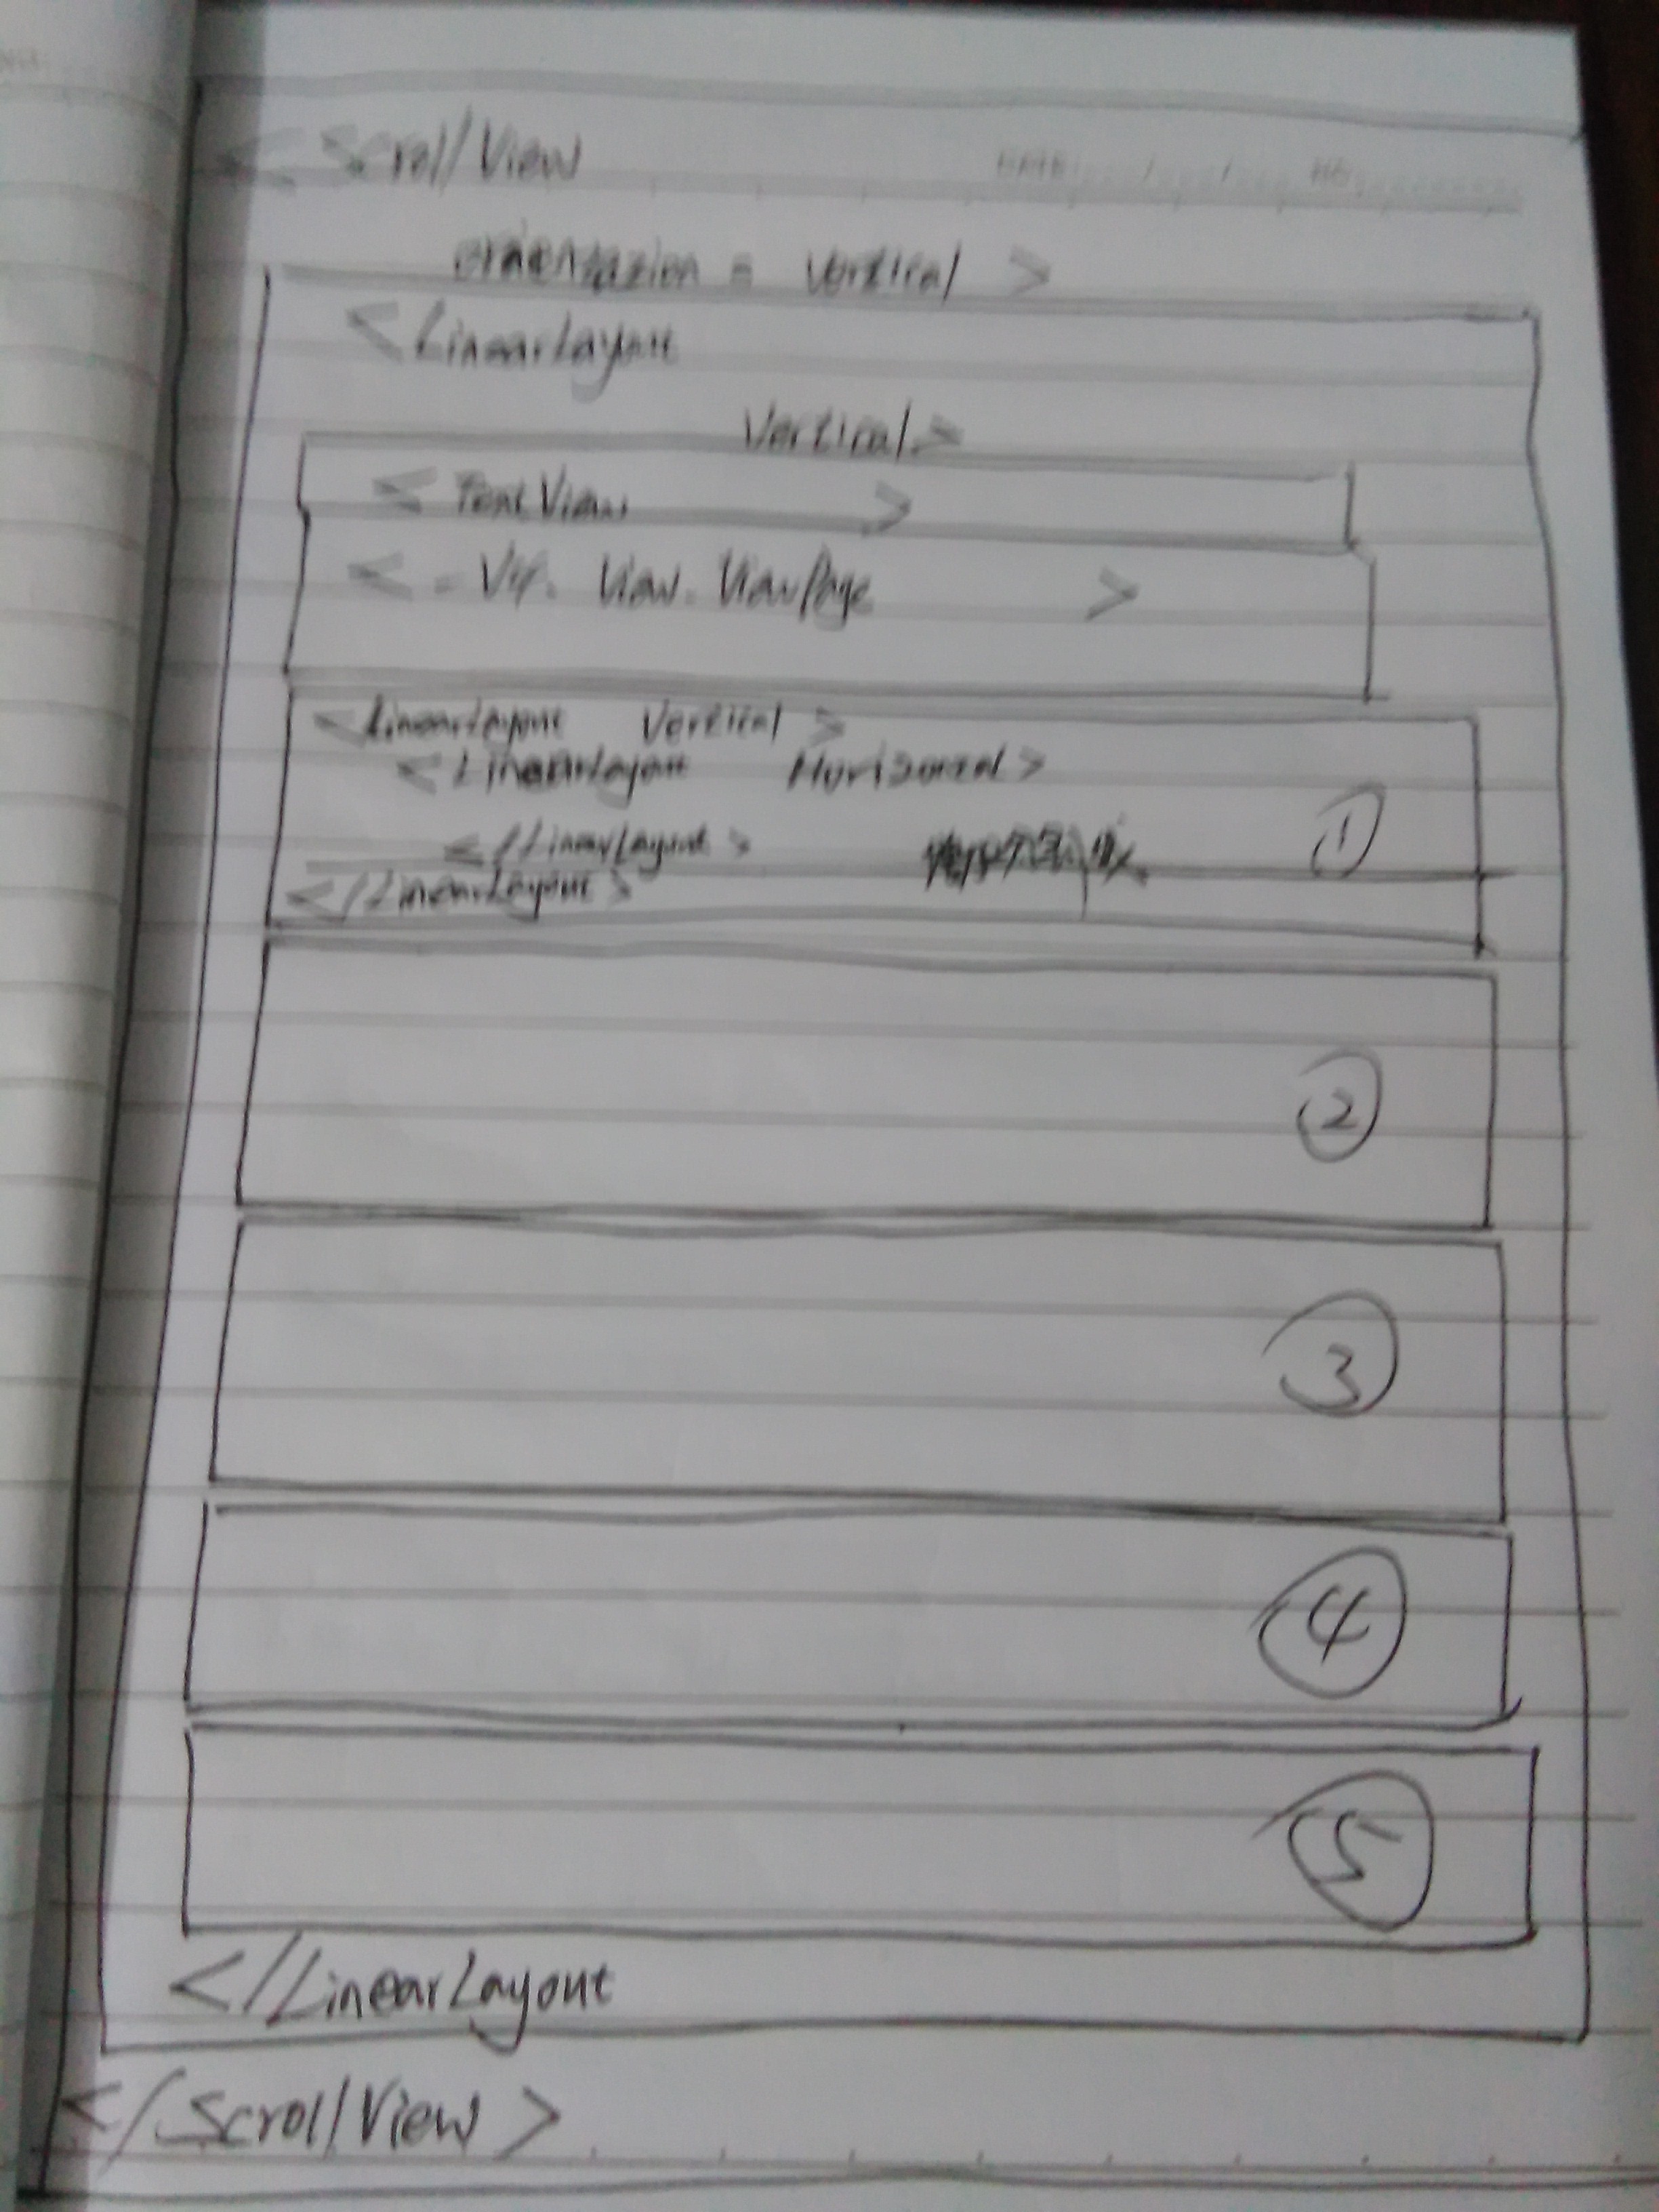 DATE / / NO.
<ScrollView
orientazion = Vertical >
<LinearLayout
Vertical >
<TextView >
< - V4. View. ViewPage >
<LinearLayout Vertical >
<LinearLayout Horizontal >
①
</LinearLayout>
</LinearLayout>
②
③
④
⑤
</LinearLayout
</ScrollView >